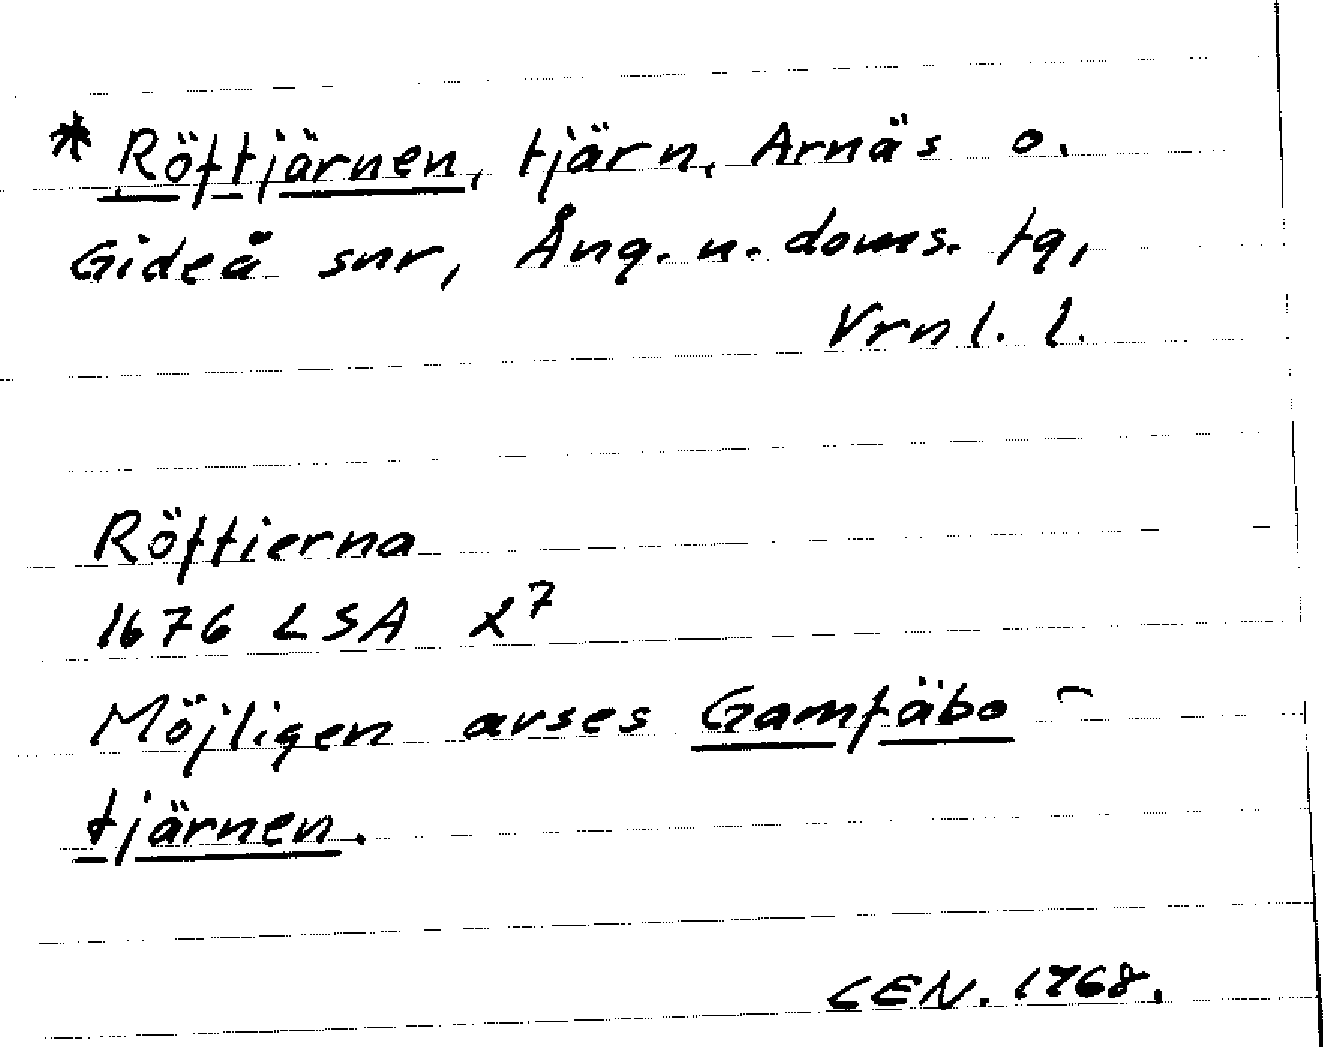 * Röftjärnen, tjärn, Arnäs o.
Gideå snr, Ång. n. doms. tg,
Vrnl. l.
Röftierna
1676 LSA X7
Möjligen avses Gamfäbo-
tjärnen.
CEN. 1968.